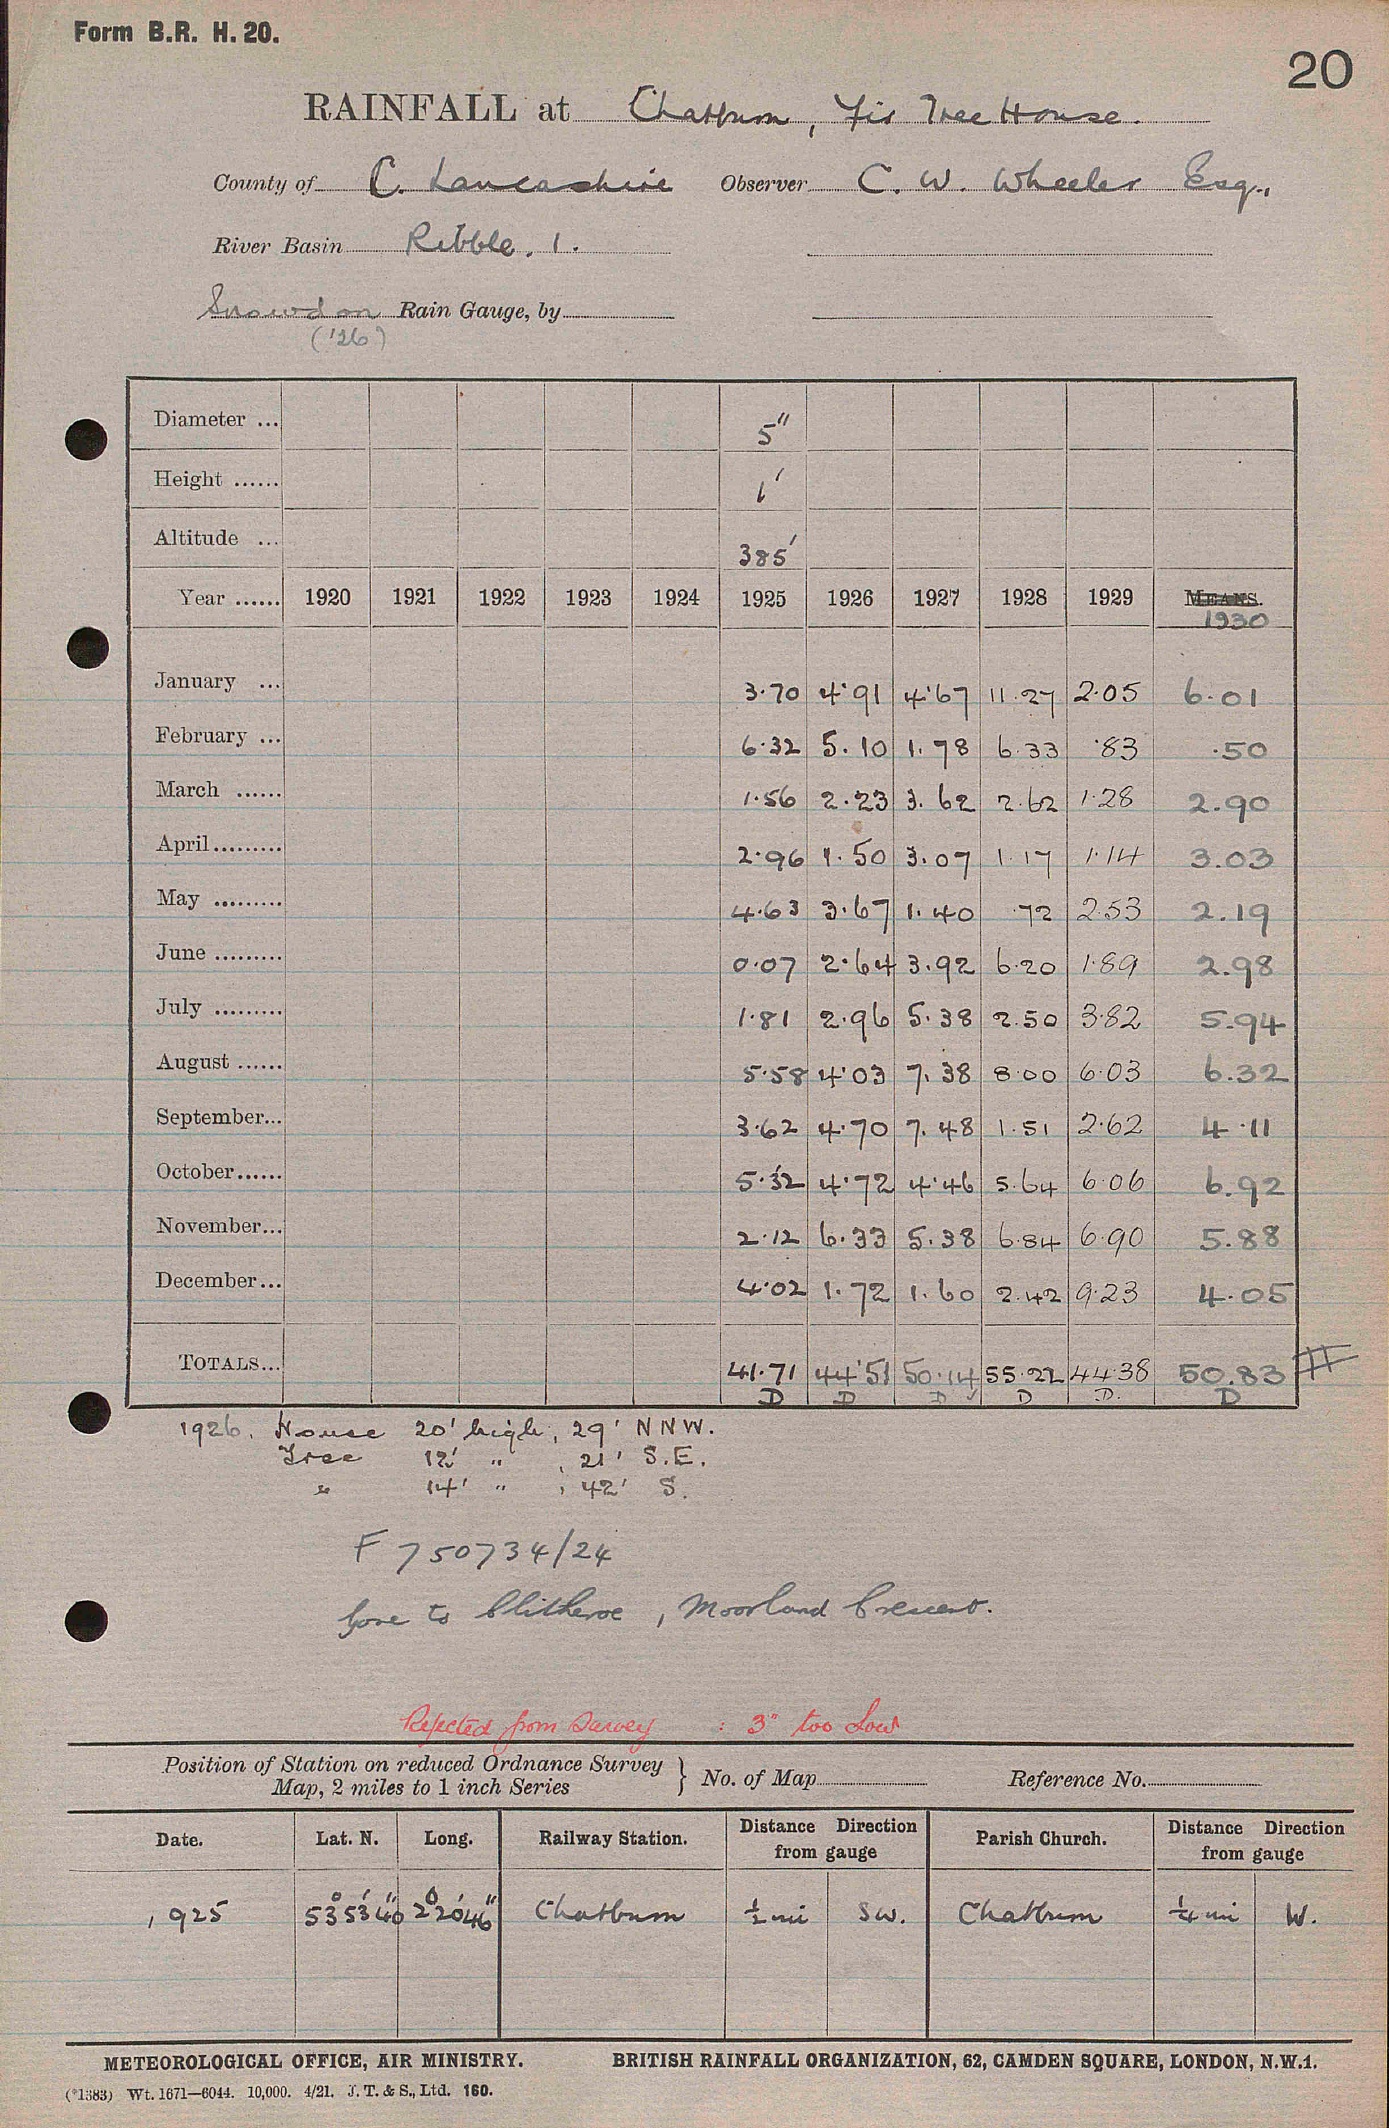 Form B.R. H. 20.
20
RAINFALL at Chatburn, Fir Tree House.
County of C. Lancashire Observer C. W. Wheeler Esq.,
River Basin Ribble. 1.
Snowdon Rain Gauge, by
('26)
Diameter ... 5"
Height ...... 1'
Altitude ... 385'
Year ...... 1920 1921 1922 1923 1924 1925 1926 1927 1928 1929 MEANS.
1930
January ... 3.70 4.91 4.67 11.27 2.05 6.01
February ... 6.32 5.10 1.78 6.33 .83 .50
March ...... 1.56 2.23 3.62 2.62 1.28 2.90
April ......... 2.96 1.50 3.07 1.17 1.14 3.03
May ......... 4.63 3.67 1.40 .72 2.53 2.19
June ......... 0.07 2.64 3.92 6.20 1.89 2.98
July ......... 1.81 2.96 5.38 2.50 3.82 5.94
August ...... 5.58 4.03 7.38 8.00 6.03 6.32
September... 3.62 4.70 7.48 1.51 2.62 4.11
October...... 5.32 4.72 4.46 5.64 6.06 6.92
November... 2.12 6.33 5.38 6.84 6.90 5.88
December... 4.02 1.72 1.60 2.42 9.23 4.05
TOTALS... 41.71 44.51 50.14 55.22 44.38 50.83 #
D D D ✓ D D. D
1926. House 20' high, 29' NNW.
Tree 12' " , 21' S.E.
" 14' " , 42' S.
F 750734/24
Gone to Clitheroe, Moorland Crescent.
Rejected from Survey : 3" too low
Position of Station on reduced Ordnance Survey
Map, 2 miles to 1 inch Series } No. of Map Reference No.
Date. Lat. N. Long. Railway Station. Distance Direction from gauge Parish Church. Distance Direction from gauge
1925 53° 53' 40" 2° 20' 46" Chatburn ½ mi SW. Chatburn ¼ mi W.
METEOROLOGICAL OFFICE, AIR MINISTRY. BRITISH RAINFALL ORGANIZATION, 62, CAMDEN SQUARE, LONDON, N.W.1.
(*1383) Wt. 1671—6044. 10,000. 4/21. J. T. & S., Ltd. 160.